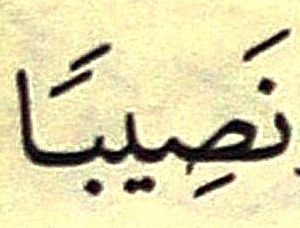 نَصِيبًا